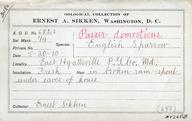 OOLOGICAL COLLECTION OF
ERNEST A. SIKKEN, WASHINGTON, D. C.
A. O. U. No. Passer domesticus
Set Mark 1/4 Species English Sparrow
Private No. Date 5-30-10
Locality East Hyattsville P. G. Co. Md.
Incubation Fresh Nest in broken rain spout
under eaves of house
Collector Ernest Sikken